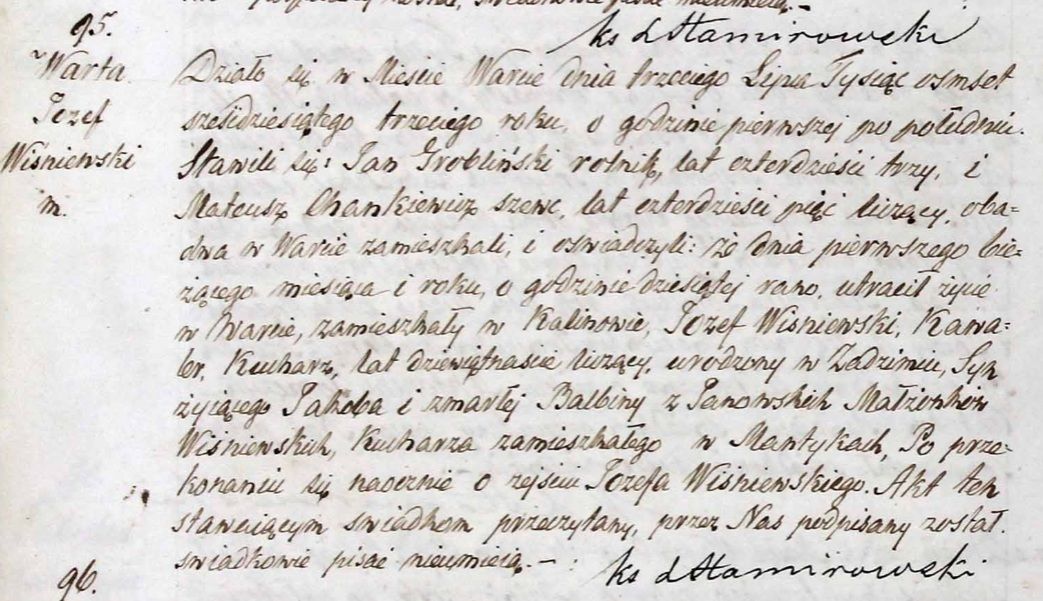 95.
ks dHamirowski
Warta
Jozef
Wiśniewski
m.
Działo się w Mieście Warcie dnia trzeciego Lipca Tysiąc osmset
sześćdziesiątego trzeciego roku, o godzinie pierwszej po południu.
Stawili się: Jan Grobliński rolnik, lat czterdzieści trzy, i
Mateusz Chankiewicz szewc, lat czterdzieści pięć liczący, oba=
dwa w Warcie zamieszkali, i oswiadczyli: że dnia pierwszego bie=
zącego miesiąca i roku, o godzinie dziesiątej rano, utracił życie
w Warcie, zamieszkały w Kalinowie, Jozef Wisniewski, Kawa=
ler, Kucharz, lat dziewiętnaście liczący, urodzony w Zadzimiu, Syn
żyjącego Jakoba i zmarłej Balbiny z Janowskich Małżonkow
Wiśniewskich, Kucharza zamieszkałego w Mantykach, Po prze=
konaniu się naocznie o zejściu Jozefa Wiśniewskiego. Akt ten
stawającym swiadkom przeczytany, przez Nas podpisany został.
swiadkowie pisać nieumieią.—
ks dHamirowski
96.